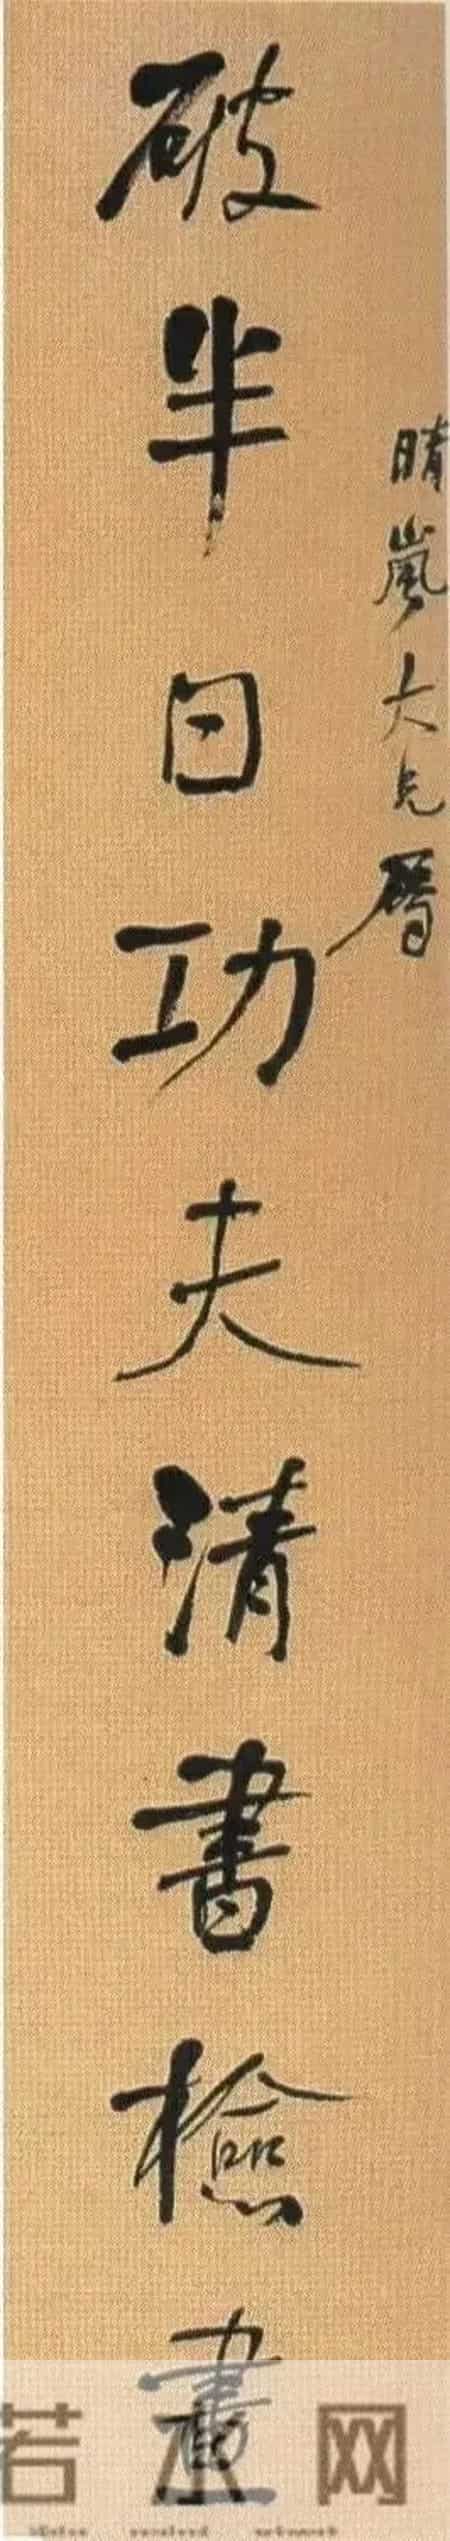 晴嵐大兄
破半日功夫清書檢畫
若水网